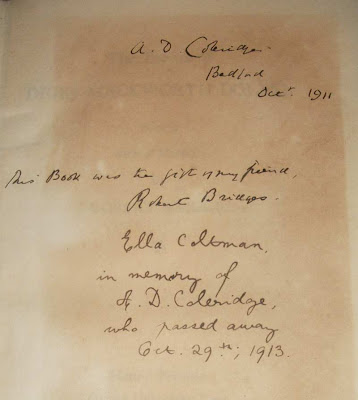 A. D Coleridge.
Bedford
Octr. 1911
This Book was the gift of my friend,
Robert Bridges.
Ella Coltman,
in memory of
A. D. Coleridge,
who passed away
Oct. 29th, 1913.